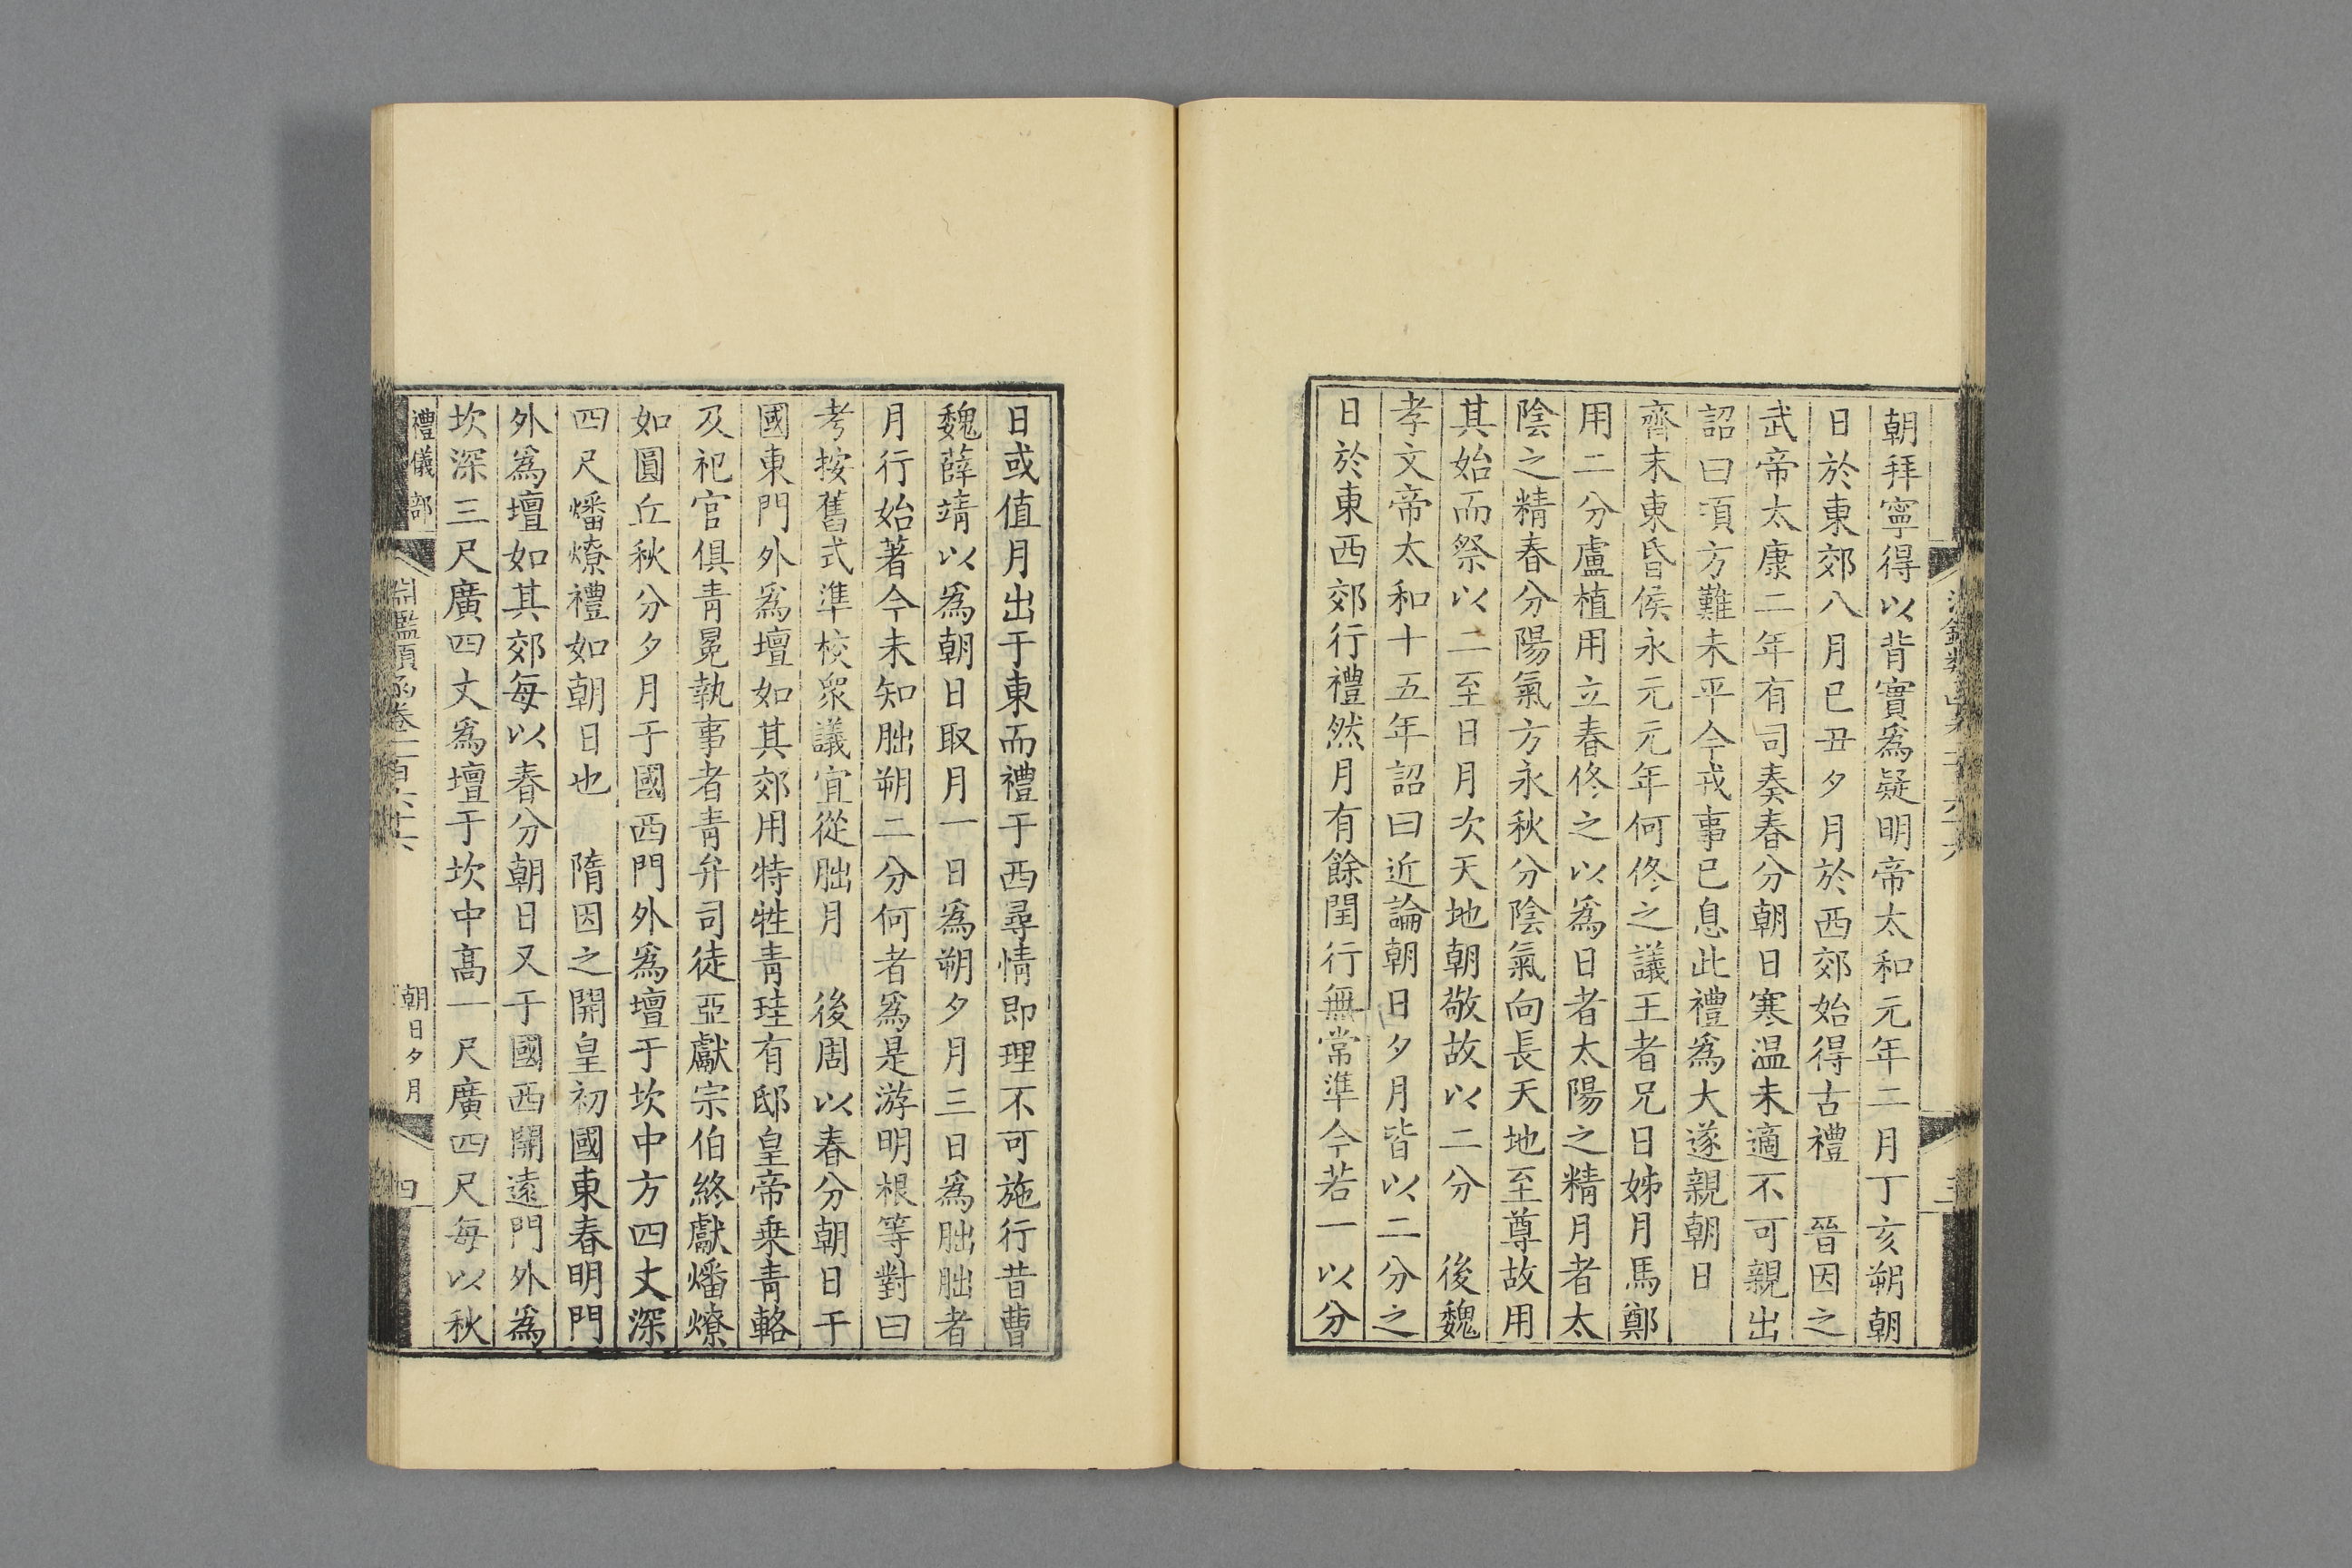 朝拜寧得以背實爲疑明帝太和元年二月丁亥朔朝
日於東郊八月已丑夕月於西郊始得古禮　晉因之
武帝太康二年有司奏春分朝日寒温未適不可親出
詔曰頃方難未平今戎事已息此禮爲大遂親朝日
齊末東昏侯永元元年何佟之議王者兄日姊月馬鄭
用二分盧植用立春佟之以爲日者太陽之精月者太
陰之精春分陽氣方永秋分陰氣向長天地至尊故用
其始而祭以二至日月次天地朝敬故以二分　後魏
孝文帝太和十五年詔曰近論朝日夕月皆以二分之
日於東西郊行禮然月有餘閏行無常準今若一以分
日或值月出于東而禮于西尋情即理不可施行昔曹
魏薛靖以爲朝日取月一日爲朔夕月三日爲朏朏者
月行始著今未知朏朔二分何者爲是游明根等對曰
考按舊式準校衆議宜從朏月　後周以春分朝日于
國東門外爲壇如其郊用特牲青珪有邸皇帝乗青輅
及祀官俱青冕執事者青弁司徒亞獻宗伯終獻燔燎
如圓丘秋分夕月于國西門外爲壇于坎中方四丈深
四尺燔燎禮如朝日也　隋因之開皇初國東春明門
外爲壇如其郊每以春分朝日又于國西開遠門外爲
坎深三尺廣四丈爲壇于坎中高一尺廣四尺每以秋
禮儀部
淵鑑類函卷一百六十六
朝日夕月
四